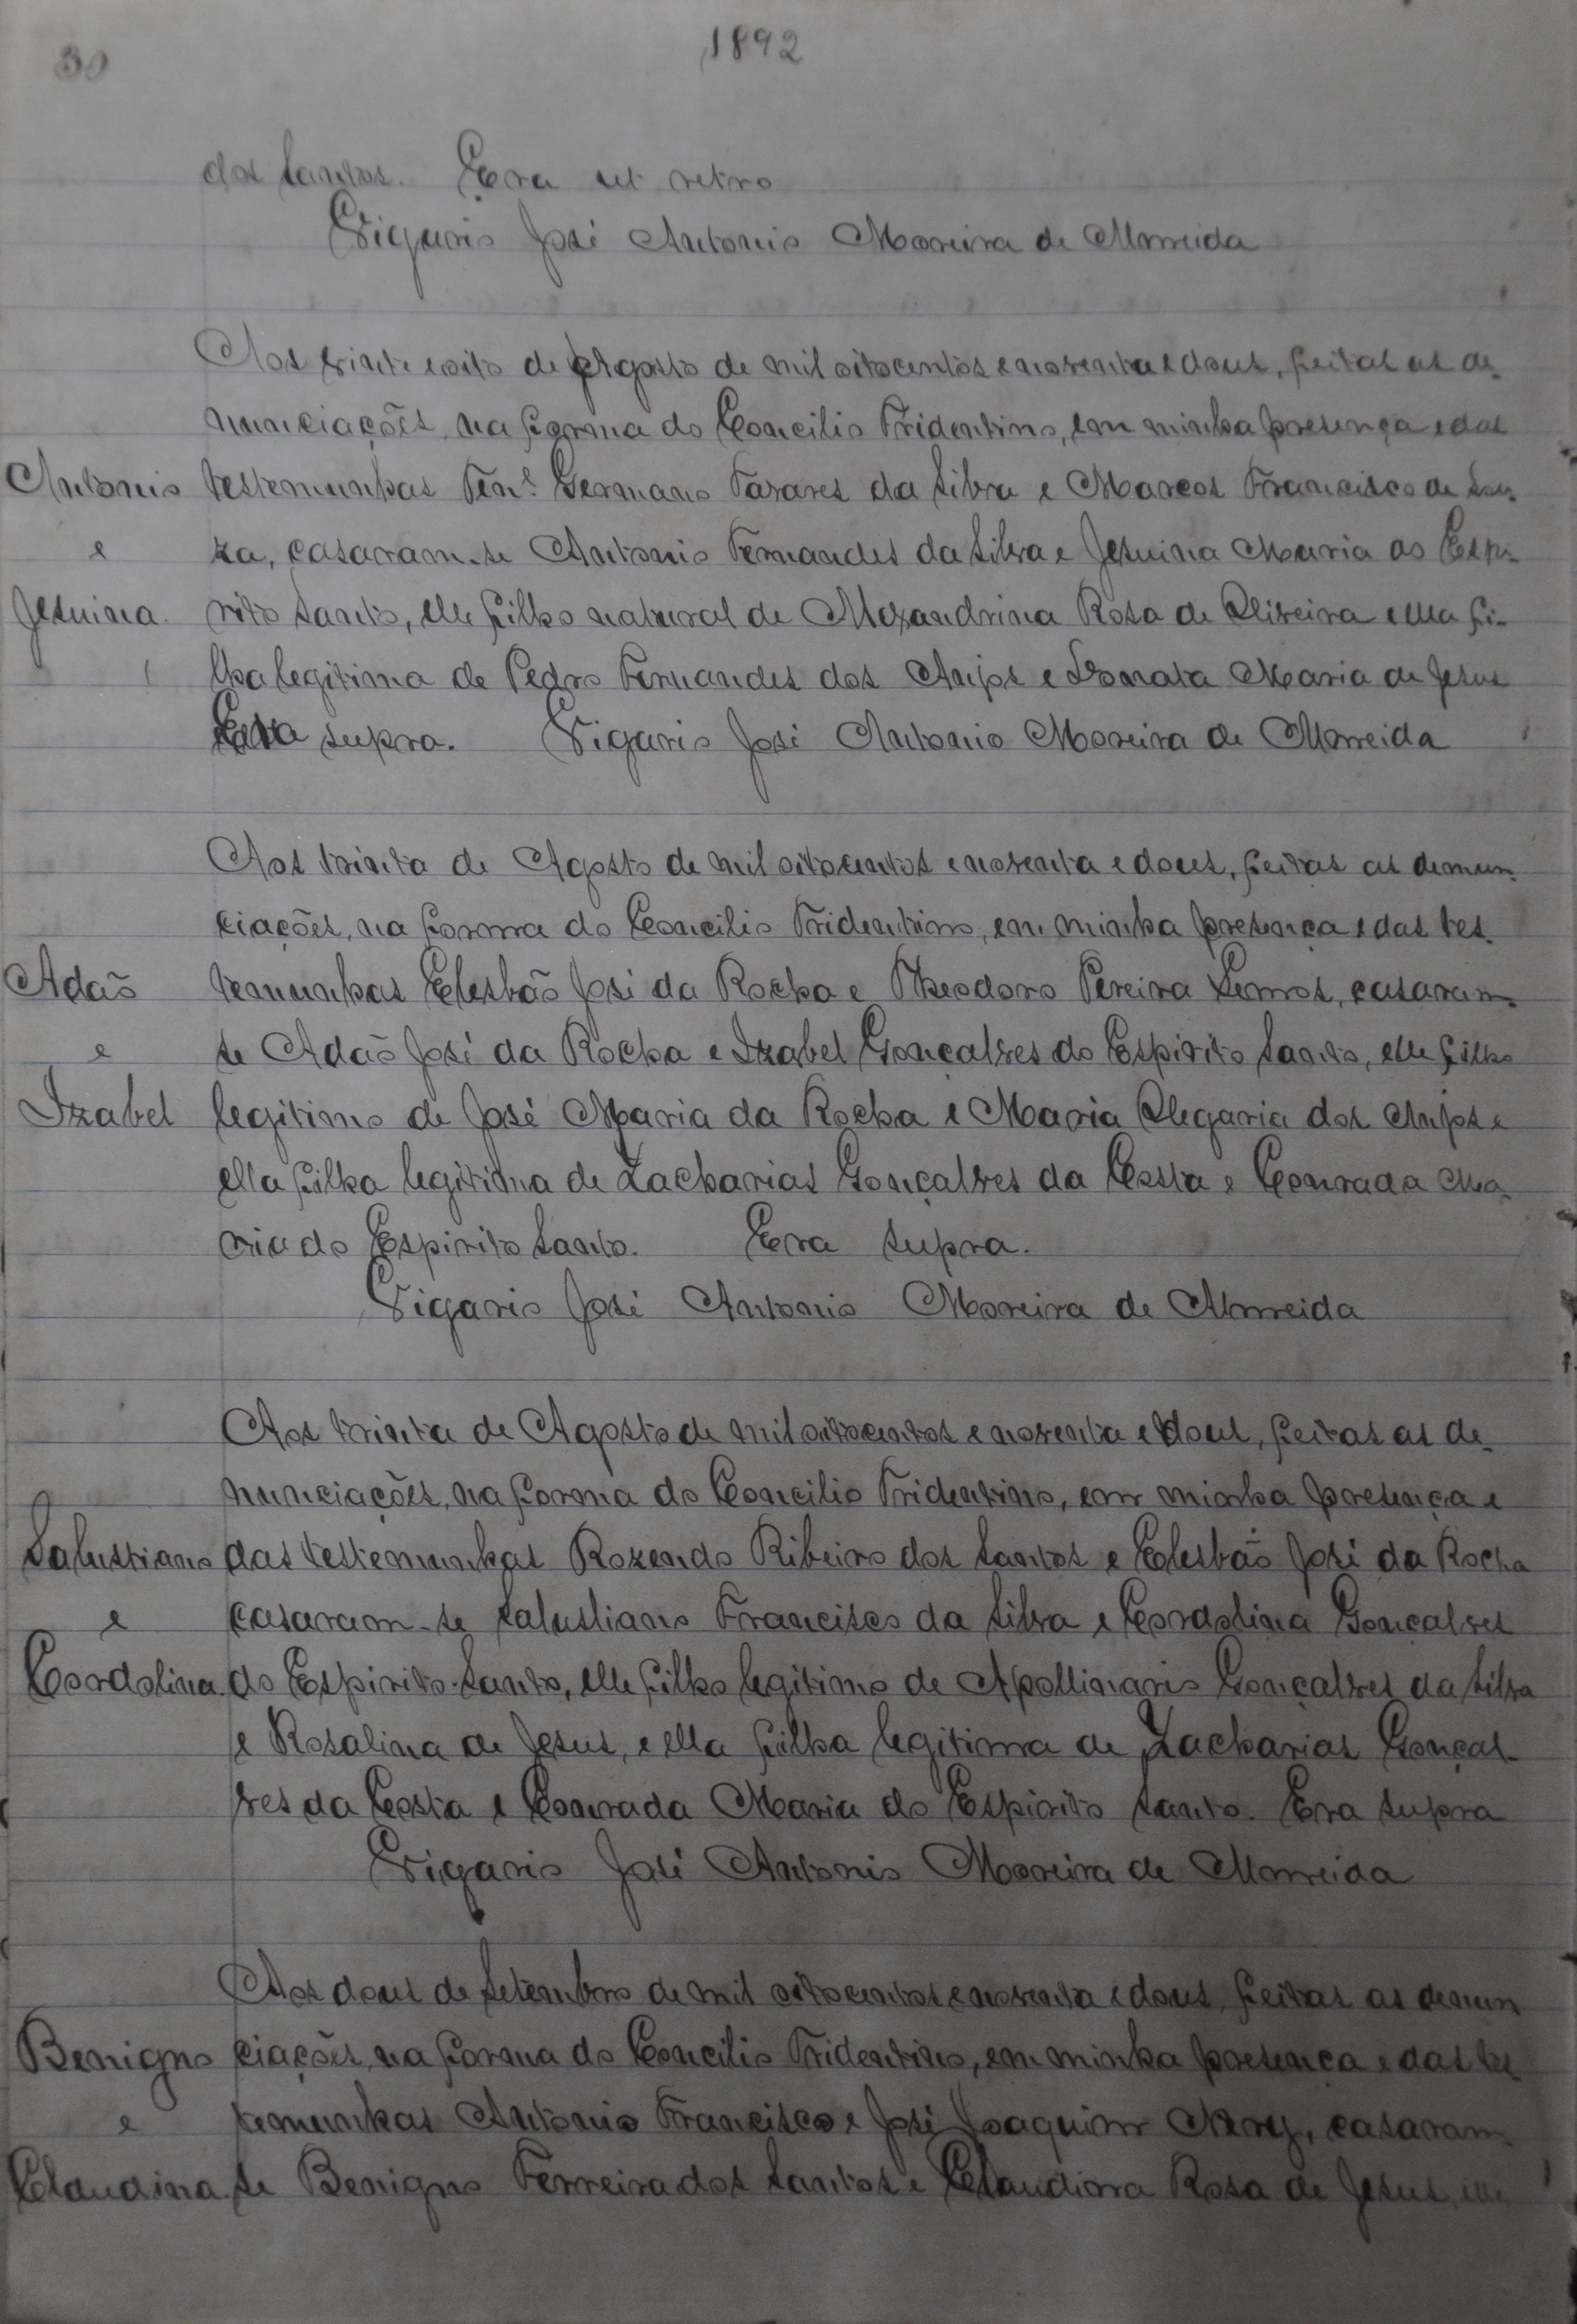 30
1892
dos Santos. Era ut retro
Vigario José Antonio Moreira de Almeida
Aos vinte e oito de Agosto de mil oitocentos e noventa e dous, feitas as de-
nunciações, na forma do Concilio Tridentino, em minha presença e das
Antonio testemunhas Tene. Germano Tavares da Silva e Marcos Francisco de Sou-
e za, casaram-se Antonio Fernandes da Silva e Jesuina Maria do Espi-
Jesuina. rito Santo, elle filho natural de Alexandrina Rosa de Oliveira e ella fi-
lha legitima de Pedro Fernandes dos Anjos e Donata Maria de Jesus
Era supra. Vigario José Antonio Moreira de Almeida
Aos trinta de Agosto de mil oitocentos e noventa e dous, feitas as denun-
ciações, na forma do Concilio Tridentino, em minha presença e das tes-
Adão temunhas Elesbão José da Rocha e Theodoro Pereira Lemos, casaram-
e se Adão José da Rocha e Izabel Gonçalves do Espirito Santo, elle filho
Izabel legitimo de José Maria da Rocha e Maria Olegaria dos Anjos e
ella filha legitima de Zacharias Gonçalves da Costa e Conrada Ma-
ria do Espirito Santo. Era supra.
Vigario José Antonio Moreira de Almeida
Aos trinta de Agosto de mil oitocentos e noventa e dous, feitas as de-
nunciações, na forma do Concilio Tridentino, em minha presença e
Salustiano das testemunhas Rozendo Ribeiro dos Santos e Elesbão José da Rocha
e casaram-se Salustiano Francisco da Silva e Cordolina Gonçalves
Cordolina. do Espirito-Santo, elle filho legitimo de Apollinario Gonçalves da Silva
e Rosalina de Jesus, e ella filha legitima de Zacharias Gonçal-
ves da Costa e Conrada Maria do Espirito Santo. Era supra
Vigario José Antonio Moreira de Almeida
Aos dous de Setembro de mil oitocentos e noventa e dous, feitas as denun
Benigno ciações, na forma do Concilio Tridentino, em minha presença e das tes-
e temunhas Antonio Francisco e José Joaquim Nery, casaram-
Claudina. se Benigno Ferreira dos Santos e Claudina Rosa de Jesus, elle